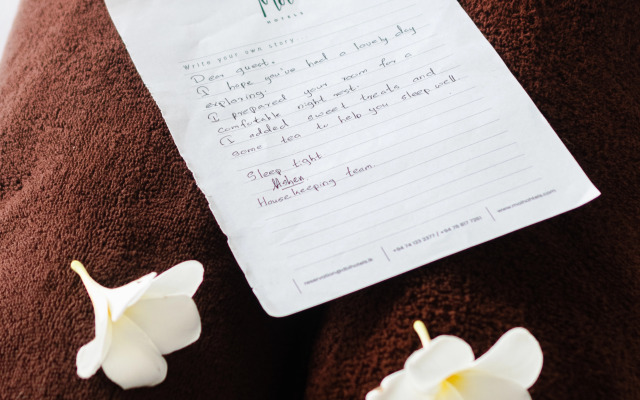 HOTELS
Write your own story
Dear guest,
I hope you've had a lovely day
exploring.
I prepared your room for a
comfortable night rest.
I added sweet treats and
some tea to help you sleep well.
Sleep tight
Housekeeping team